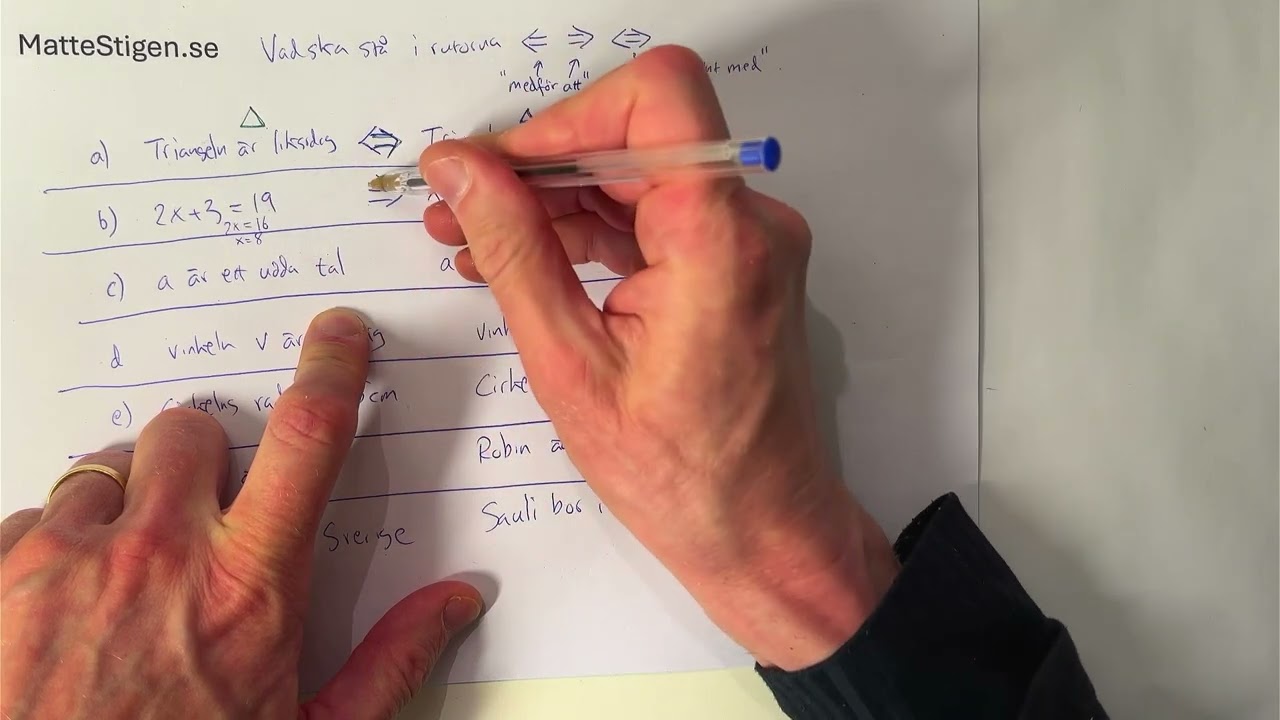 MatteStigen.se Vad ska stå i rutorna ⇐ ⇒ ⇔
"medför att" med".
a) Triangeln är liksidig ⇔
b) 2x+3=19 ⇒
2x=16
x=8
c) a är ett udda tal a
d vinkeln v är
e) Cirkelns cm
Robin
Sverige Sauli bor i